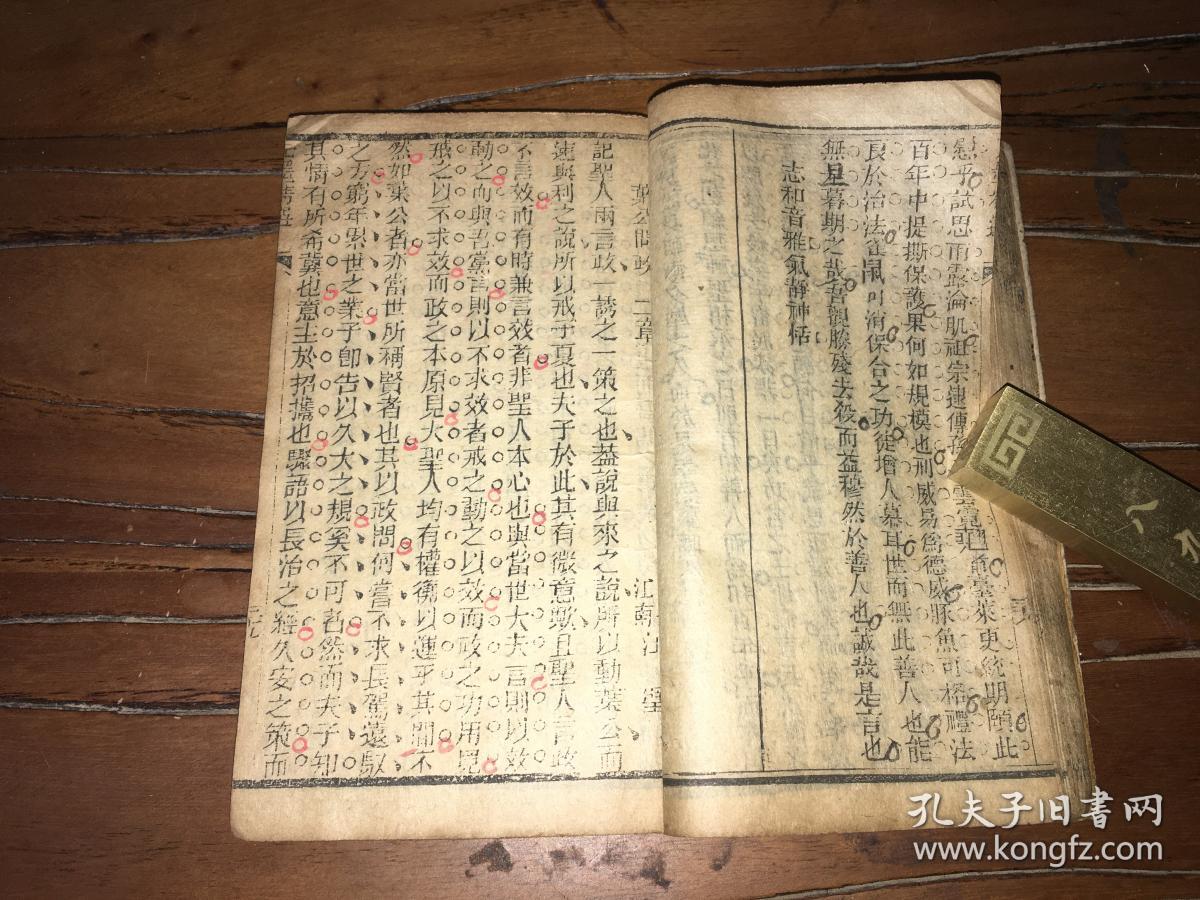 百年中提撕保護果何如規模也刑威易爲德威豚魚可格禮法
良於治法雀鼠可消保合之功徒增人慕耳世而無此善人也能
無旦暮期之哉吾觀勝殘去殺而益穆然於善人也誠哉是言也
志和音雅氣靜神恬
葉公問政 二章 江朝江
記聖人兩言政一誘之一策之也葢說與來之說所以動葉公而
速與利之說所以戒子夏也夫子於此其有微意歟且聖人言政
不言效而有時兼言效者非聖人本心也與當世大夫言則以效
動之而與吾黨言則以不求效者戒之動之以效而政之功用見
戒之以不求效而政之本原見大聖人均有權衡以運乎其間不
然如葉公者亦當世所稱賢者也其以政問何嘗不求長駕遠馭
之方窮年累世之業子卽告以久大之規奚不可者然而夫子知
其情有所希冀也意主於招攜也驟語以長治之經久安之策而
八
孔夫子旧書网
www.kongfz.com